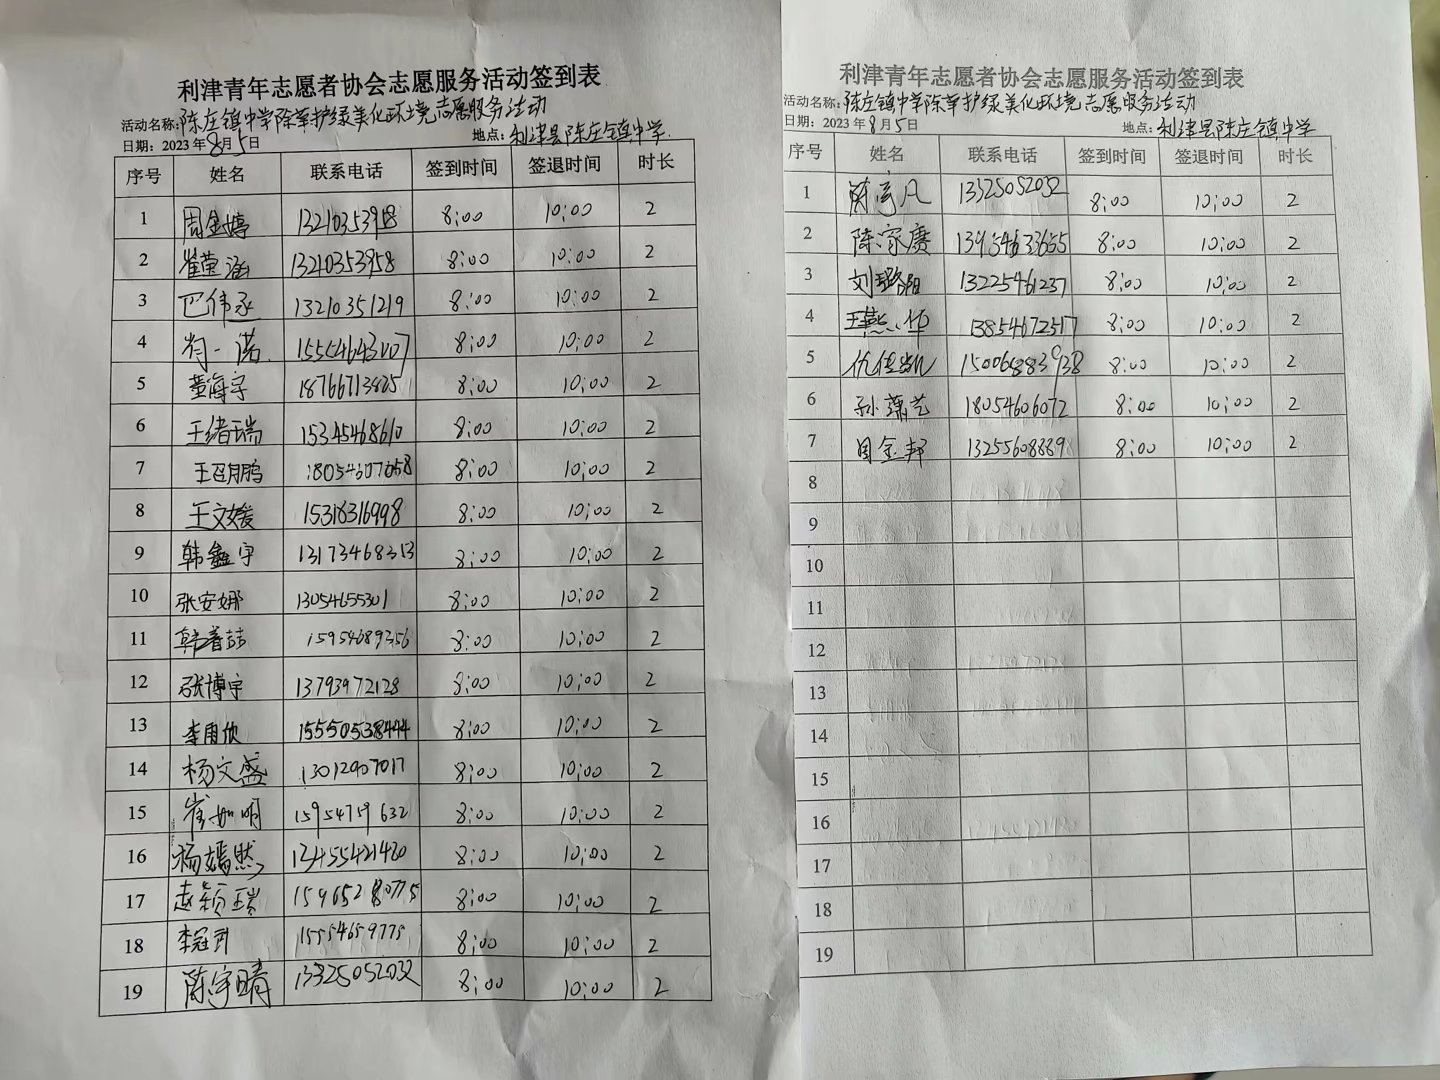 利津青年志愿者协会志愿服务活动签到表
活动名称:陈庄镇中学除草护绿美化环境志愿服务活动
日期：2023年8月5日 地点：利津县陈庄镇中学.
序号 姓名 联系电话 签到时间 签退时间 时长
1 周金婷 8:00 10:00 2
2 崔莹涵 13210353958 8:00 10:00 2
3 巴伟丞 13210351219 8:00 10:00 2
4 一诺 8:00 10:00 2
5 董海宇 18766713825 8:00 10:00 2
6 王绪瑞 15345468610 8:00 10:00 2
7 王召鹏 18054607658 8:00 10:00 2
8 王文媛 15318316998 8:00 10:00 2
9 韩鑫宇 13173468313 8:00 10:00 2
10 张安娜 13054655301 8:00 10:00 2
11 15954689356 8:00 10:00 2
12 张博宇 13793972128 8:00 10:00 2
13 李雨欣 15550538444 8:00 10:00 2
14 杨文盛 13012907017 8:00 10:00 2
15 崔如明 15954759632 8:00 10:00 2
16 杨嫣然 8:00 10:00 2
17 赵颖 15965280775 8:00 10:00 2
18 李冠 15554659775 8:00 10:00 2
19 陈宇晴 13325052032 8:00 10:00 2
利津青年志愿者协会志愿服务活动签到表
活动名称:陈庄镇中学除草护绿美化环境志愿服务活动
日期：2023年8月5日 地点：利津县陈庄镇中学
序号 姓名 联系电话 签到时间 签退时间 时长
1 陈宇凡 13325052032 8:00 10:00 2
2 陈家赓 13954633655 8:00 10:00 2
3 刘璐阳 13225461237 8:00 10:00 2
4 王燕华 13854672517 8:00 10:00 2
5 仇佳凯 15006883938 8:00 10:00 2
6 孙艺 18054606072 8:00 10:00 2
7 周金邦 13255608889 8:00 10:00 2
8
9
10
11
12
13
14
15
16
17
18
19